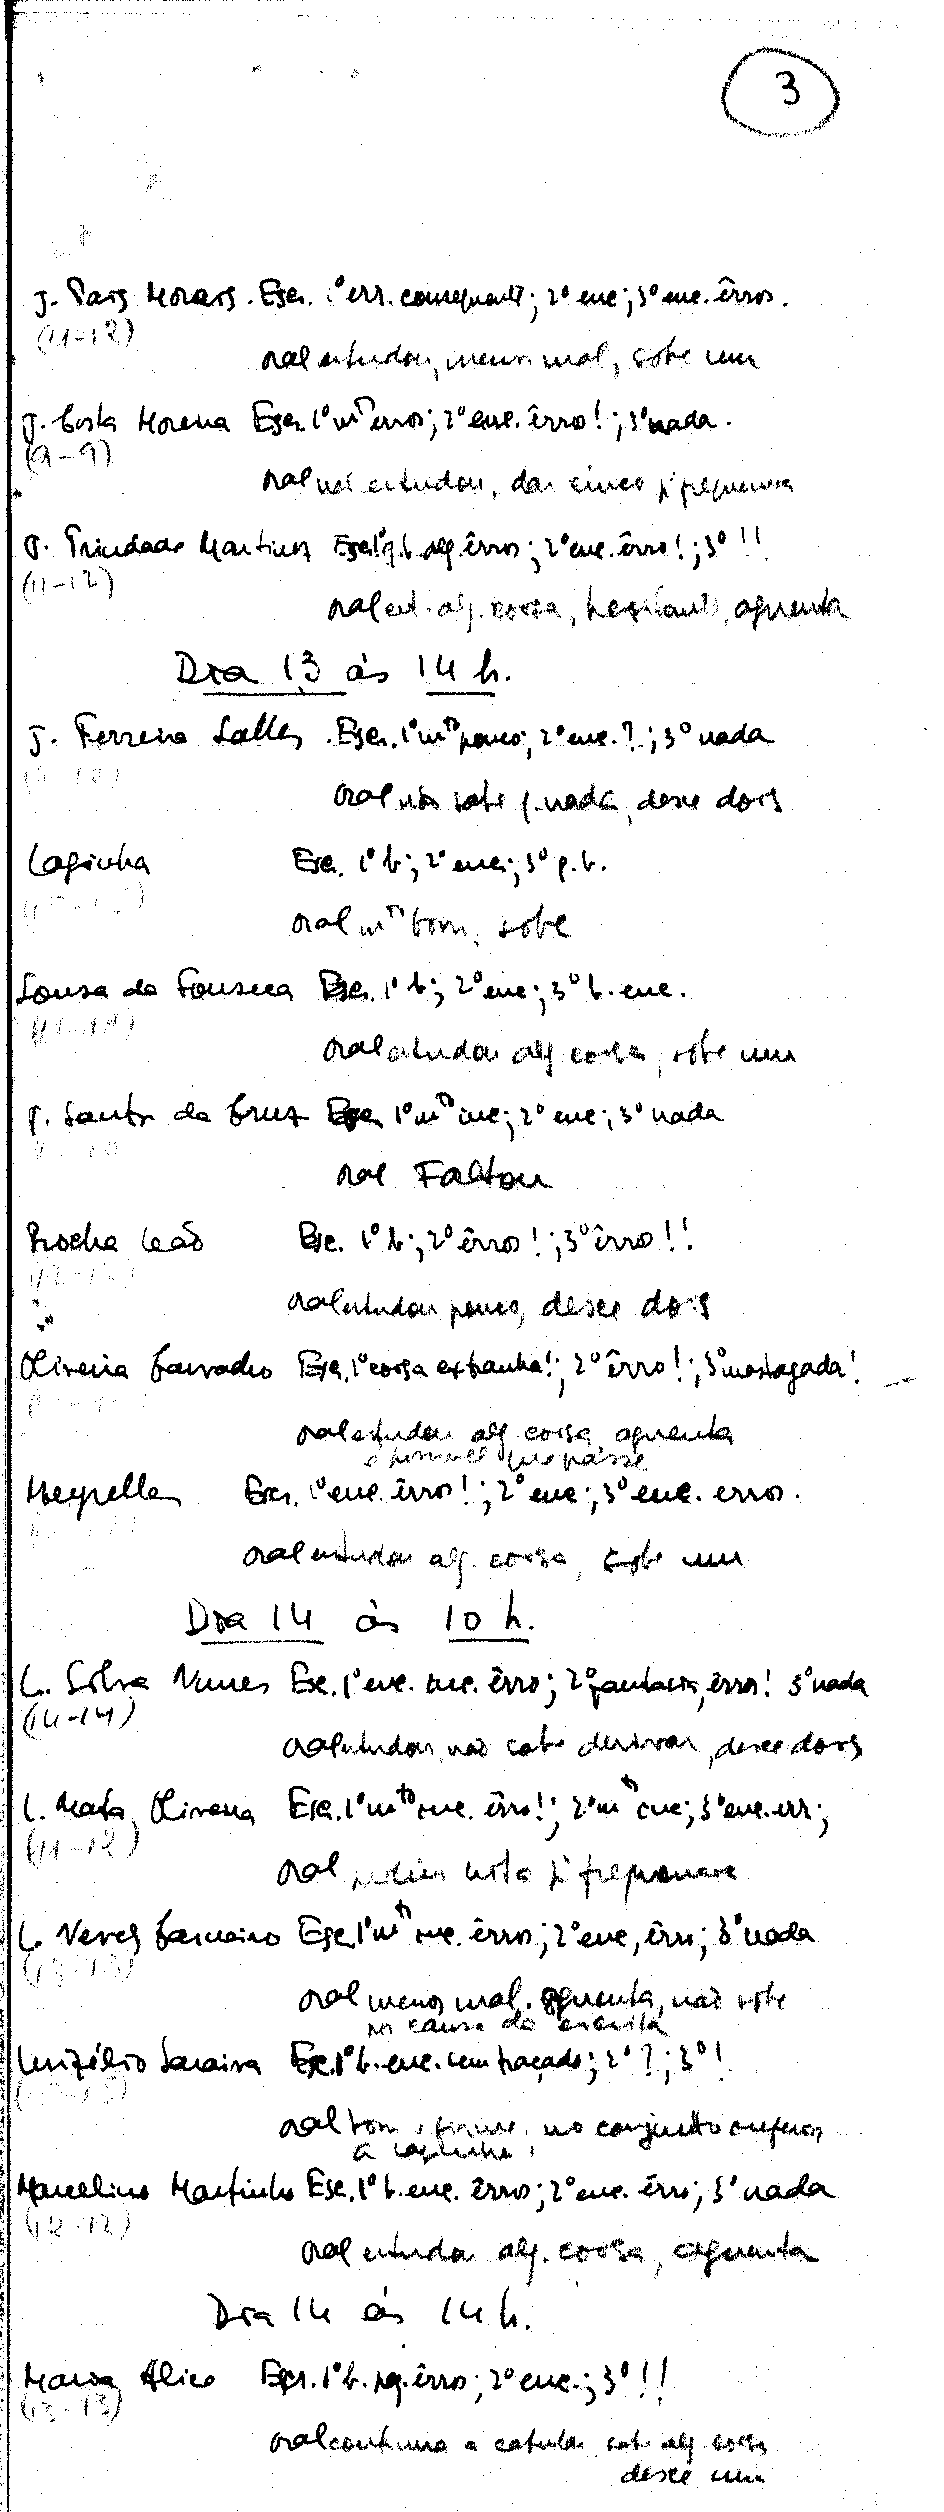 3
J. Pais Morais. Escr. 1º err. consequente; 2º enc; 3º enc. êrros.
(11-12)
oral estudou, menos mal, sobe um
J. Costa Moreira Escr. 1º mto erros; 2º enc. êrro!; 3º nada.
(9-9)
oral não estudou, dar cinco p/ frequencia
J. Trindade Martins Escr. 1º q.b. alg. êrros; 2º enc. êrro!; 3º !!
(11-12)
oral est. alg. coisa, hesitante, aguenta
Dia 13 às 14 h.
J. Ferreira Salles. Escr. 1º mto pouco; 2º enc. ?; 3º nada
oral não sabe q. nada, desce dois
Laginha Esc. 1º b; 2º enc; 3º q.b.
oral mto bom, sobe
Sousa da Fonseca Esc. 1º b; 2º enc; 3º b. enc.
oral estudou alg coisa, sobe um
J. Santos da Cruz Esc. 1º mto inc; 2º enc; 3º nada
oral Faltou
Rocha Leão Esc. 1º b; 2º êrros!; 3º êrro!!
oral estudou pouco, desce dois
Oliveira Esc. 1º coisa extranha!; 2º êrro!; 3º!
oral estudou alg coisa, aguenta
é possivel que passe
Meyrelles Escr. 1º enc. êrros!; 2º enc; 3º enc. erros.
oral estudou alg. coisa, sobe um
Dia 14 às 10 h.
L. Silva Nunes Esc. 1º enc. inc. êrro; 2º fantasia, êrros! 3º nada
(14-14)
oral estudou, não sabe derivar, desce dois
L. Mata Oliveira Esc. 1º mto inc. êrro!; 2º mto inc; 3º enc. err;
(11-12)
oral pediu nota p/ frequencia
L. Neves Esc. 1º mto inc. êrros; 2º enc, êrro; 3º nada
(13-13)
oral menos mal. aguenta, não sobe
por causa da escrita
Saraiva Esc. 1º b. enc. sem traçado; 2º ?; 3º !
oral bom, firme, no conjunto inferior
a Laginha
Marcelino Martinho Esc. 1º b. enc. êrro; 2º enc. êrro; 3º nada
(12-12)
oral estudou alg. coisa, aguenta
Dia 14 às 14 h.
Maria Alice Escr. 1º b. pq. êrro; 2º enc.; 3º !!
(13-13)
oral continua a sab. alg coisa
desce um